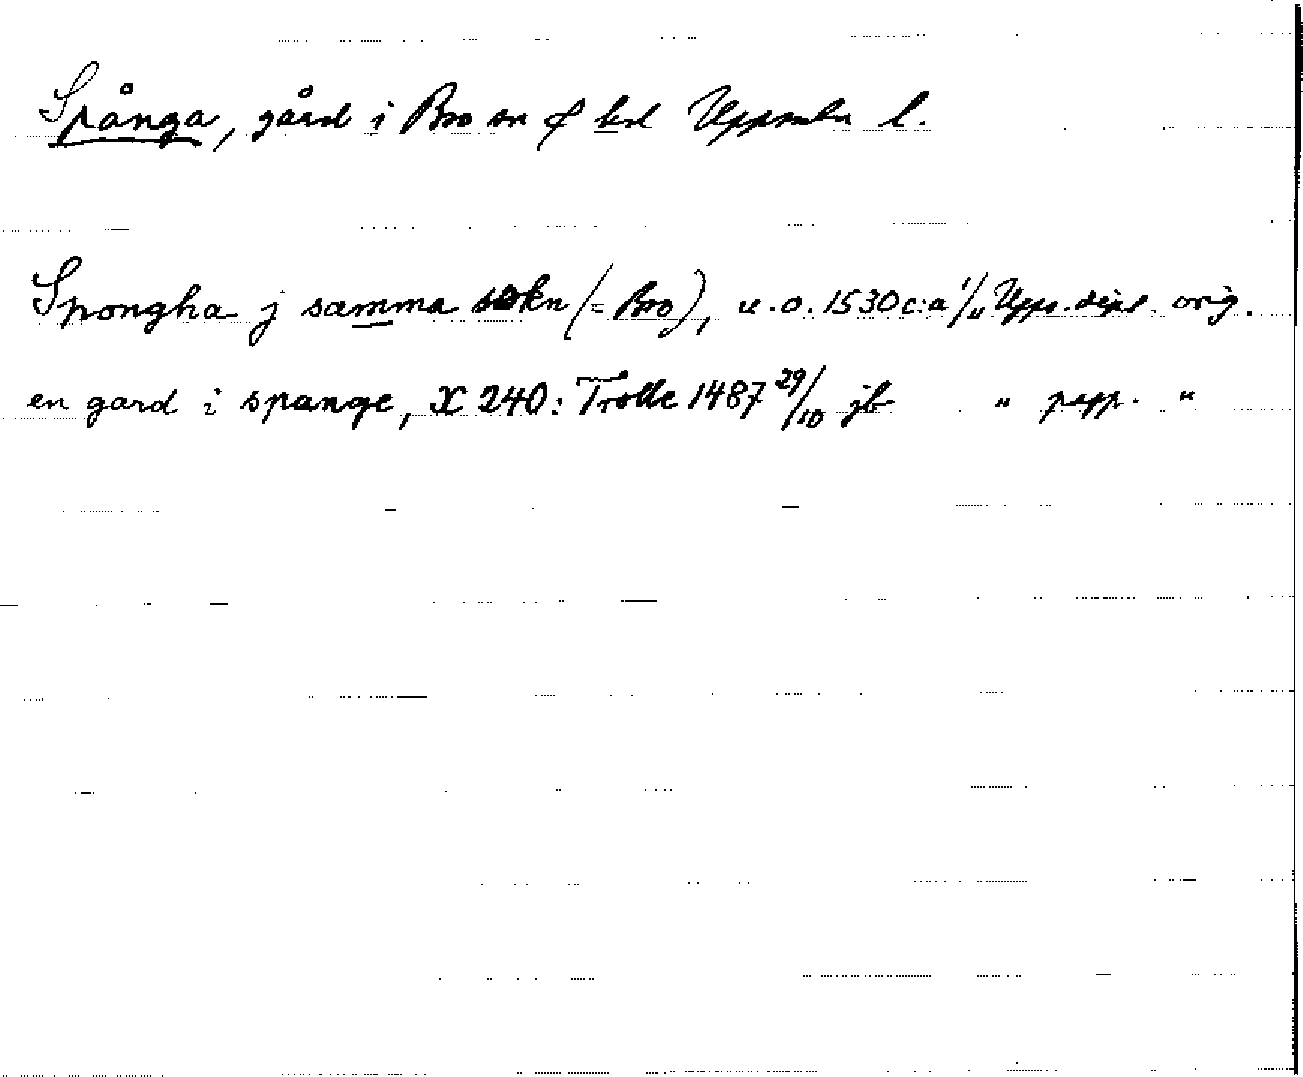 Spånga, gård i Bro sn o hd Uppsala l.
Spongha j samma sokn (= Bro), u.o. 1530 c:a 1/11 Upps. dipl. orig.
en gard i spange, X 240: Trolle 1487 29/10 jb " papp. "